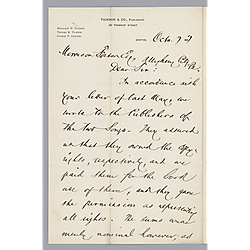 TICKNOR & CO., PUBLISHERS
211 TREMONT STREET
BENJAMIN H. TICKNOR
THOMAS B. TICKNOR
BOSTON, Octo. 7
Morrison Foster Esq, Allegheny City Pa.
Dear Sir:
In accordance with
your letter of last May, we
wrote to the Publishers of
the two songs. They assured
us that they owned the copy-
rights, respectively, and we
paid them for the book
use of them, and they gave
the permission as
all rights. The sums were
merely nominal however, as